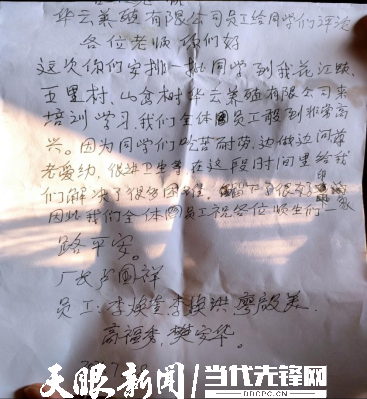 华云养殖有限公司员工给同学们评论
各位老师 你们好
这次你们安排一批同学到我花江镇
五里村、山岔树华云养殖有限公司来
培训学习,我们全体员工感到非常高
兴。因为同学们吃苦耐劳,边做边问尊
老爱幼、很讲卫生等,在这段日时间里给我
们解决了很多困难,留下了很好
印象
因此我们全体员工祝各位师生们一
路平安。
厂长
员工:李
高福秀,樊安华。
天眼新闻 当代先锋网